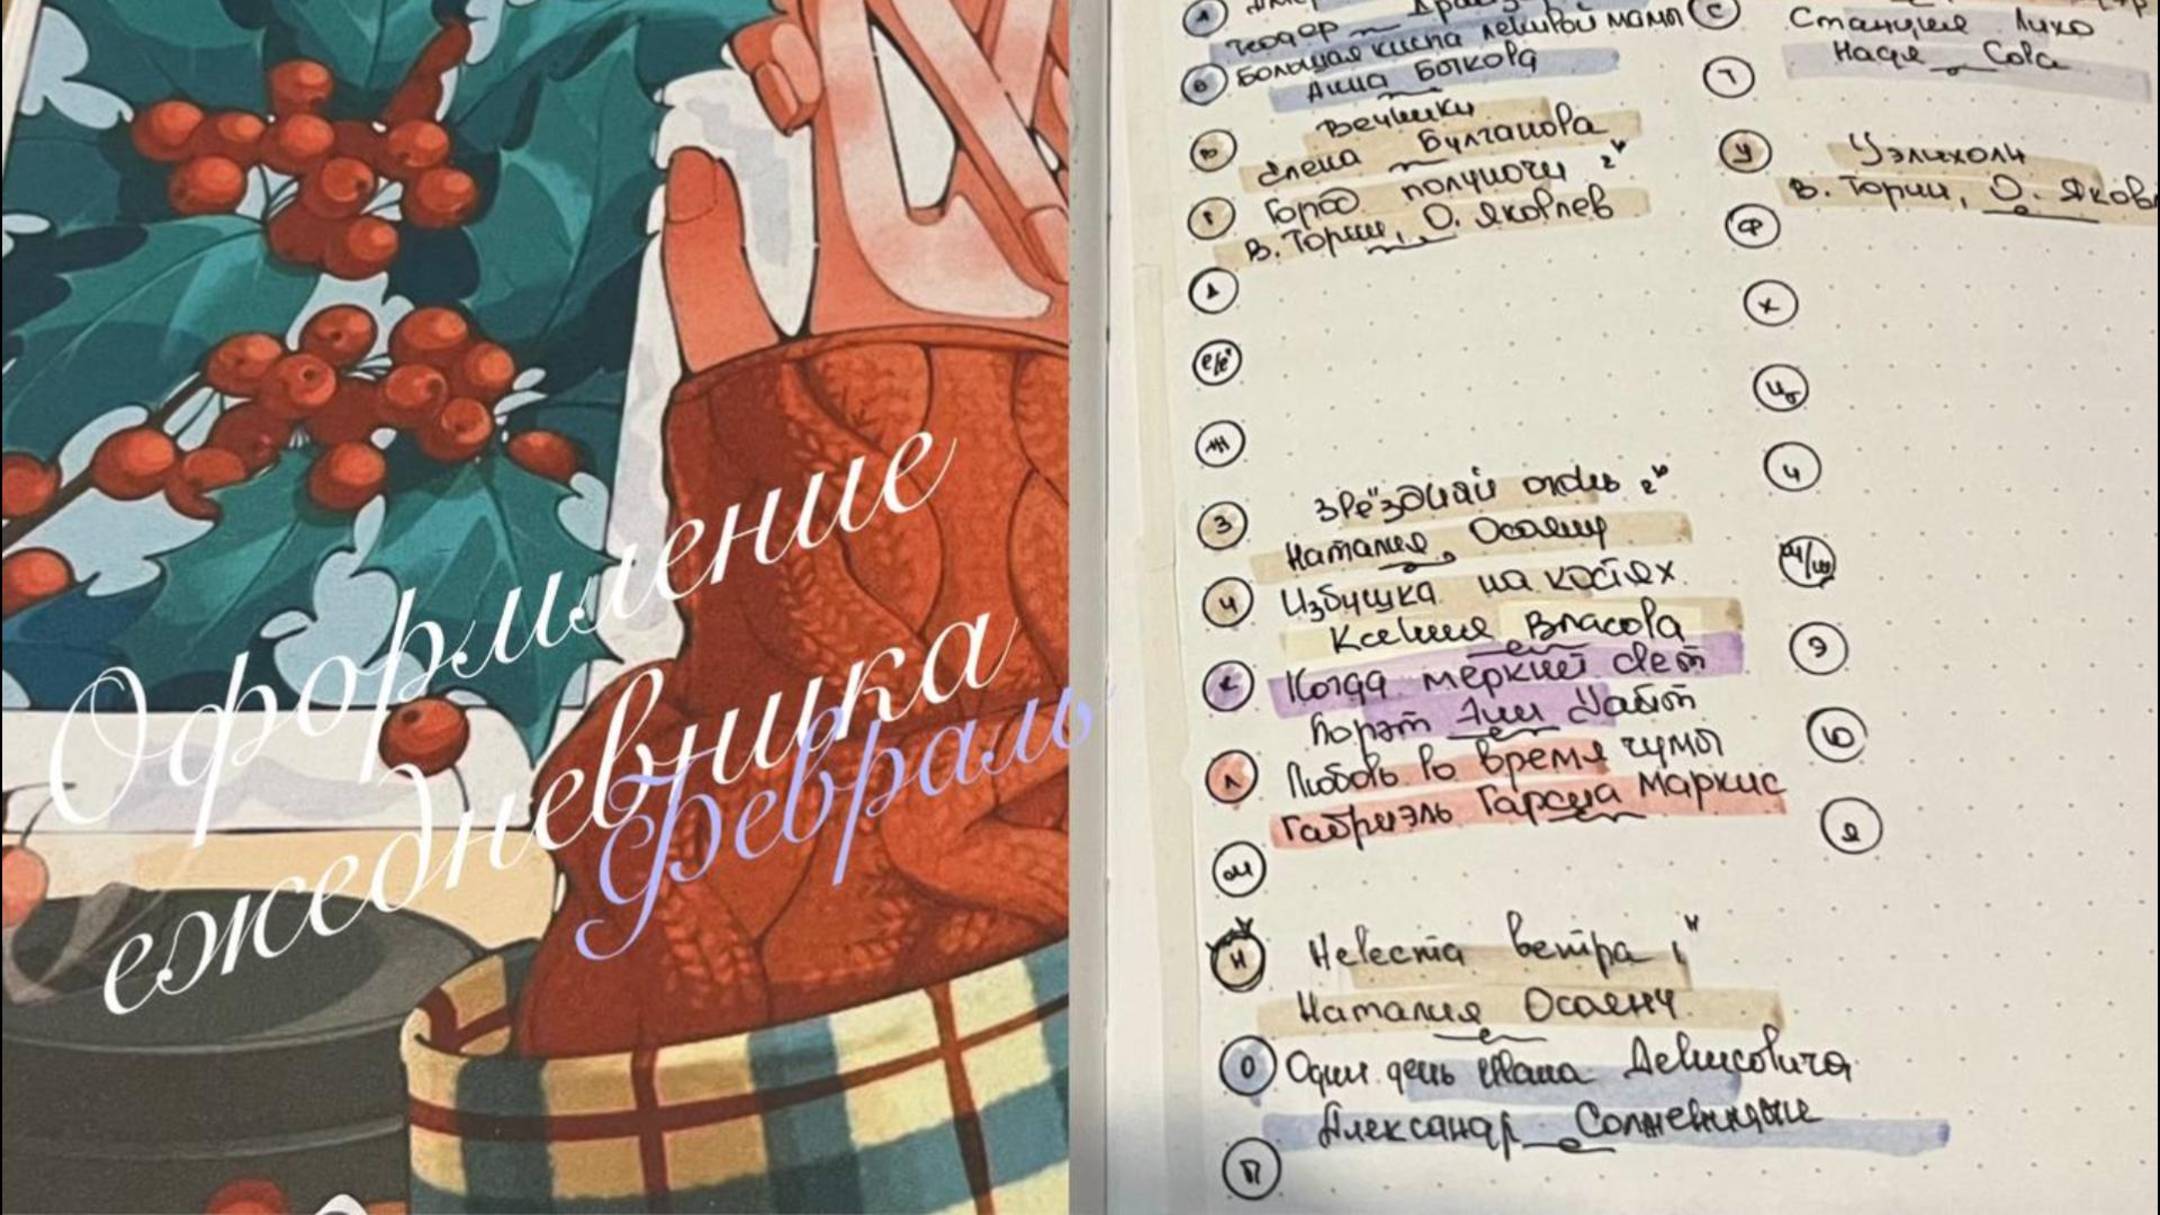 Оформление
ежедневника
Февраль
А
Теодор Драйзер
Б
Большая книга ленивой мамы
Анна Быкова
В
Вечники
Елена Булганова
Г
Город полуночи 2"
В. Торин, О. Яковлев
Д
Е/Ё
Ж
З
Звёздный огонь 2"
Наталия Осояну
И
Избушка на костях
Ксения Власова
К
Когда меркнет свет
Уайт
Л
Любовь во время чумы
Габриэль Гарсиа Маркис
М
Н
Невеста ветра 1"
Наталия Осояну
О
Один день Ивана Денисовича
Александр Солженицын
П
С
Станция Лихо
Надя Сова
Т
У
Уэлихолн
В. Торин, О. Яковл
Ф
Х
Ц
Ч
Э
Ю
Я